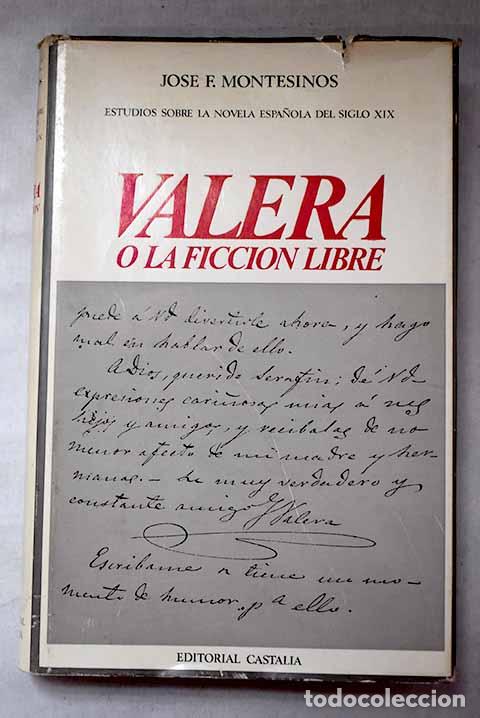 JOSE F. MONTESINOS
ESTUDIOS SOBRE LA NOVELA ESPAÑOLA DEL SIGLO XIX
VALERA
O LA FICCION LIBRE
puede á Vd divertirle ahora, y hago
mal en hablar de ello.
A Dios, querido Serafin; dé Vd
expresiones cariñosas mias á
hijos y amigos, y recibalas de no
menor afecto de mi madre y her-
manas.- Su muy verdadero y
constante amigo
J Valera
Escribame si tiene un mo-
mento de humor pa ello.
EDITORIAL CASTALIA
todocoleccion